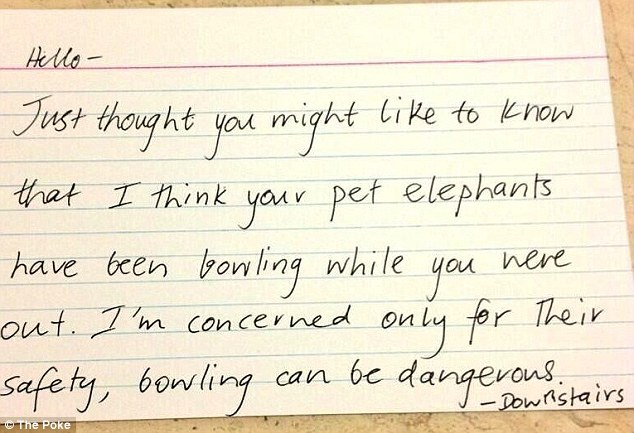 Hello-
Just thought you might like to know
that I think your pet elephants
have been bowling while you were
out. I'm concerned only for their
safety, bowling can be dangerous.
-Downstairs
© The Poke